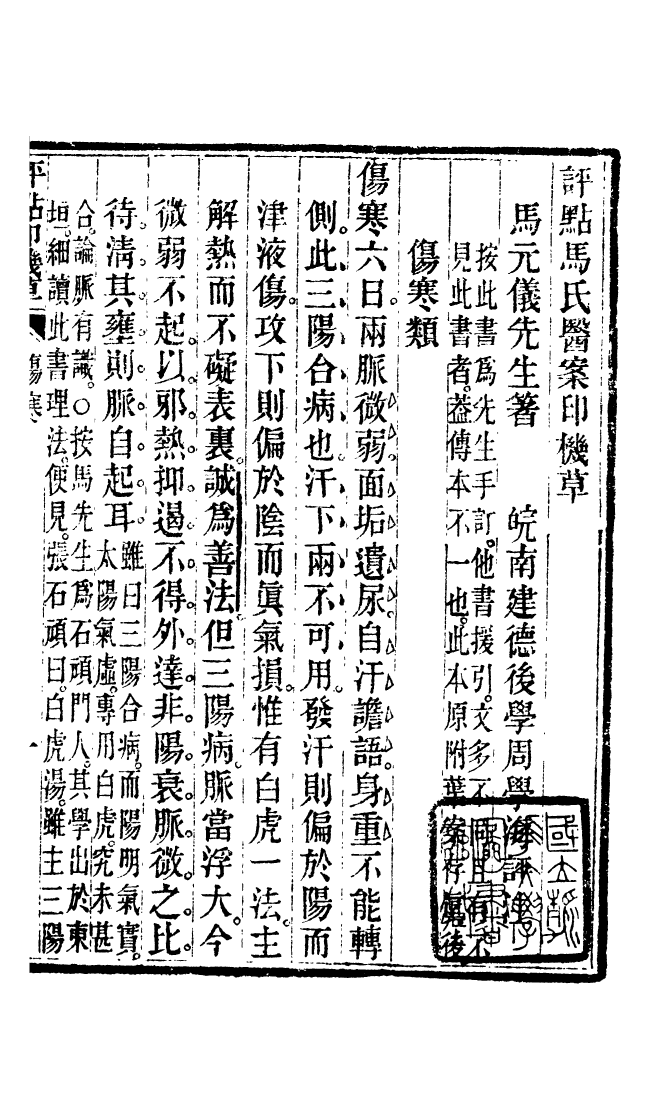 評點馬氏醫案印機草
馬元儀先生著　皖南建德後學周學海評
按此書爲先生手訂。他書援引。文多不同。且有不
見此書者。葢傳本不一也。此本原附葉案存眞後
傷寒類
傷寒六日。兩脈微弱。面垢遺尿。自汗譫語。身重不能轉
側。此三陽合病也。汗下兩不可用。發汗則偏於陽而
津液傷。攻下則偏於陰而眞氣損。惟有白虎一法。主
解熱而不礙表裏。誠爲善法。但三陽病。脈當浮大。今
微弱不起。以邪熱抑遏不得外達。非陽衰脈微之比。
待淸其壅則脈自起耳
雖曰三陽合病。而陽明氣實。
太陽氣虛。專用白虎。究未甚
合。論脈有識。○按馬先生爲石頑門人。其學出於東
垣。細讀此書理法。便見。張石頑曰。白虎湯。雖主三陽
評點印機草
傷寒
一
國立